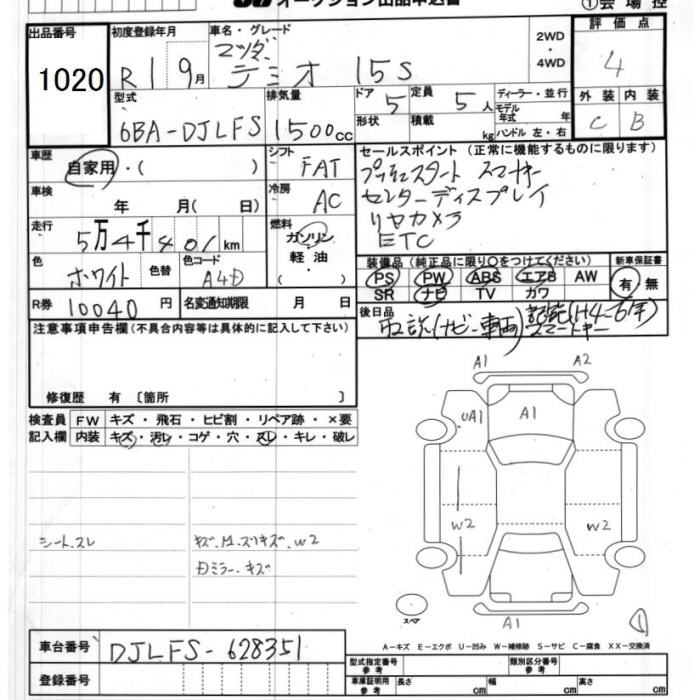 オークション出品申込書
①会場控
出品番号 1020
初度登録年月 R1 9月
車名・グレード マツダ デミオ 15S
2WD・4WD
評価点 4
型式 6BA-DJLFS
排気量 1500cc
ドア 5 定員 5人
形状 積載 kg
ディーラー・並行
モデル年式 年
ハンドル 左・右
外装 C 内装 B
車歴 自家用・( )
シフト FAT
車検 年 月(日)
冷房 AC
走行 5万4千401km
燃料 ガソリン・軽油・( )
色 ホワイト 色替
色コード A4D
R券 10040円
名変通知期限 月 日
セールスポイント(正常に機能するものに限ります)
プッシュスタート スマートキー
センターディスプレイ
リヤカメラ
ETC
装備品(純正品に限り○をつけてください)
PS PW ABS エアB AW
SR ナビ TV カワ
新車保証書 有・無
後日品 取説(ナビ・車両) 記簿(H4-6年)
スマートキー
注意事項申告欄(不具合内容等は具体的に記入して下さい)
修復歴 有〔箇所 〕
検査員記入欄
FW キズ・飛石・ヒビ割・リペア跡・×要
内装 キズ・汚レ・コゲ・穴・スレ・キレ・破レ
シートスレ
キズ.M.スリキズ.W2
Dミラーキズ
A1 A2
UA1 A1
W2 W2
スペア
A1
①
A-キズ E-エクボ U-凹み W-補修跡 S-サビ C-腐食 XX-交換済
車台番号 DJLFS-628351
登録番号
型式指定番号 参考
類別区分番号 参考
車庫証明用 参考 長さ cm 幅 cm 高さ cm